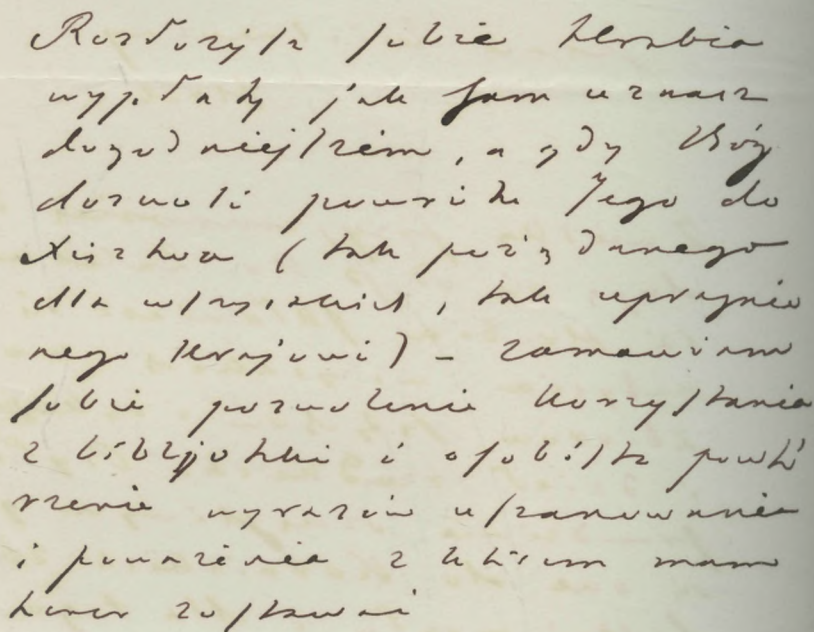 Rozłożysz sobie Hrabia
wypłaty jak sam uznasz
dogodniejszem, a gdy Bóg
dozwoli powrótu Jego do
(tak pożądanego
dla wszystkich, tak upragnio
nego Krajowi) – zamawiam
sobie pozwolenie korzystania
z bibljoteki i osobiste powtó
rzenie wyrazów uszanowania
i poważenia z którem mam
honor zostawać